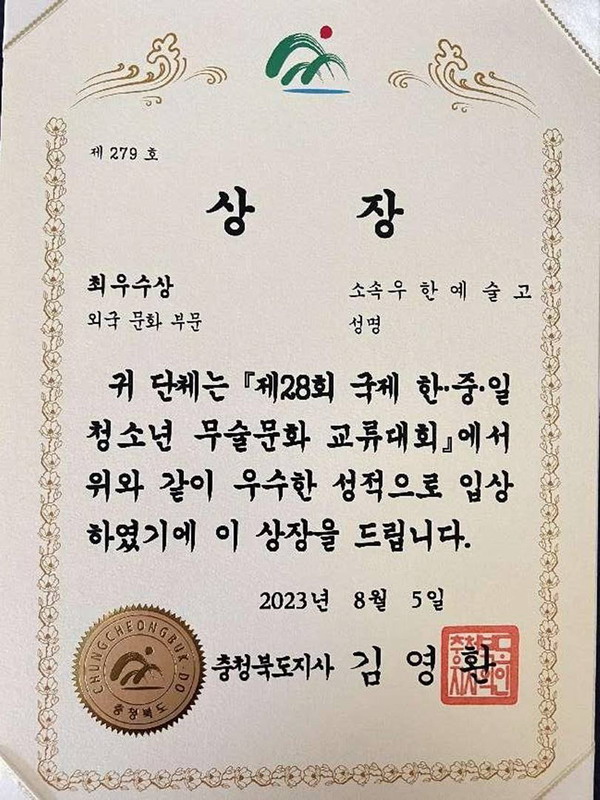 제 279 호
상 장
최우수상 소속우 한 예 술 고
외국 문화 부문 성명
귀 단체는 『제28회 국제 한·중·일
청소년 무술문화 교류대회』에서
위와 같이 우수한 성적으로 입상
하였기에 이 상장을 드립니다.
2023년 8월 5일
충청북도지사 김 영 환
CHUNGCHEONGBUK-DO
충청북도